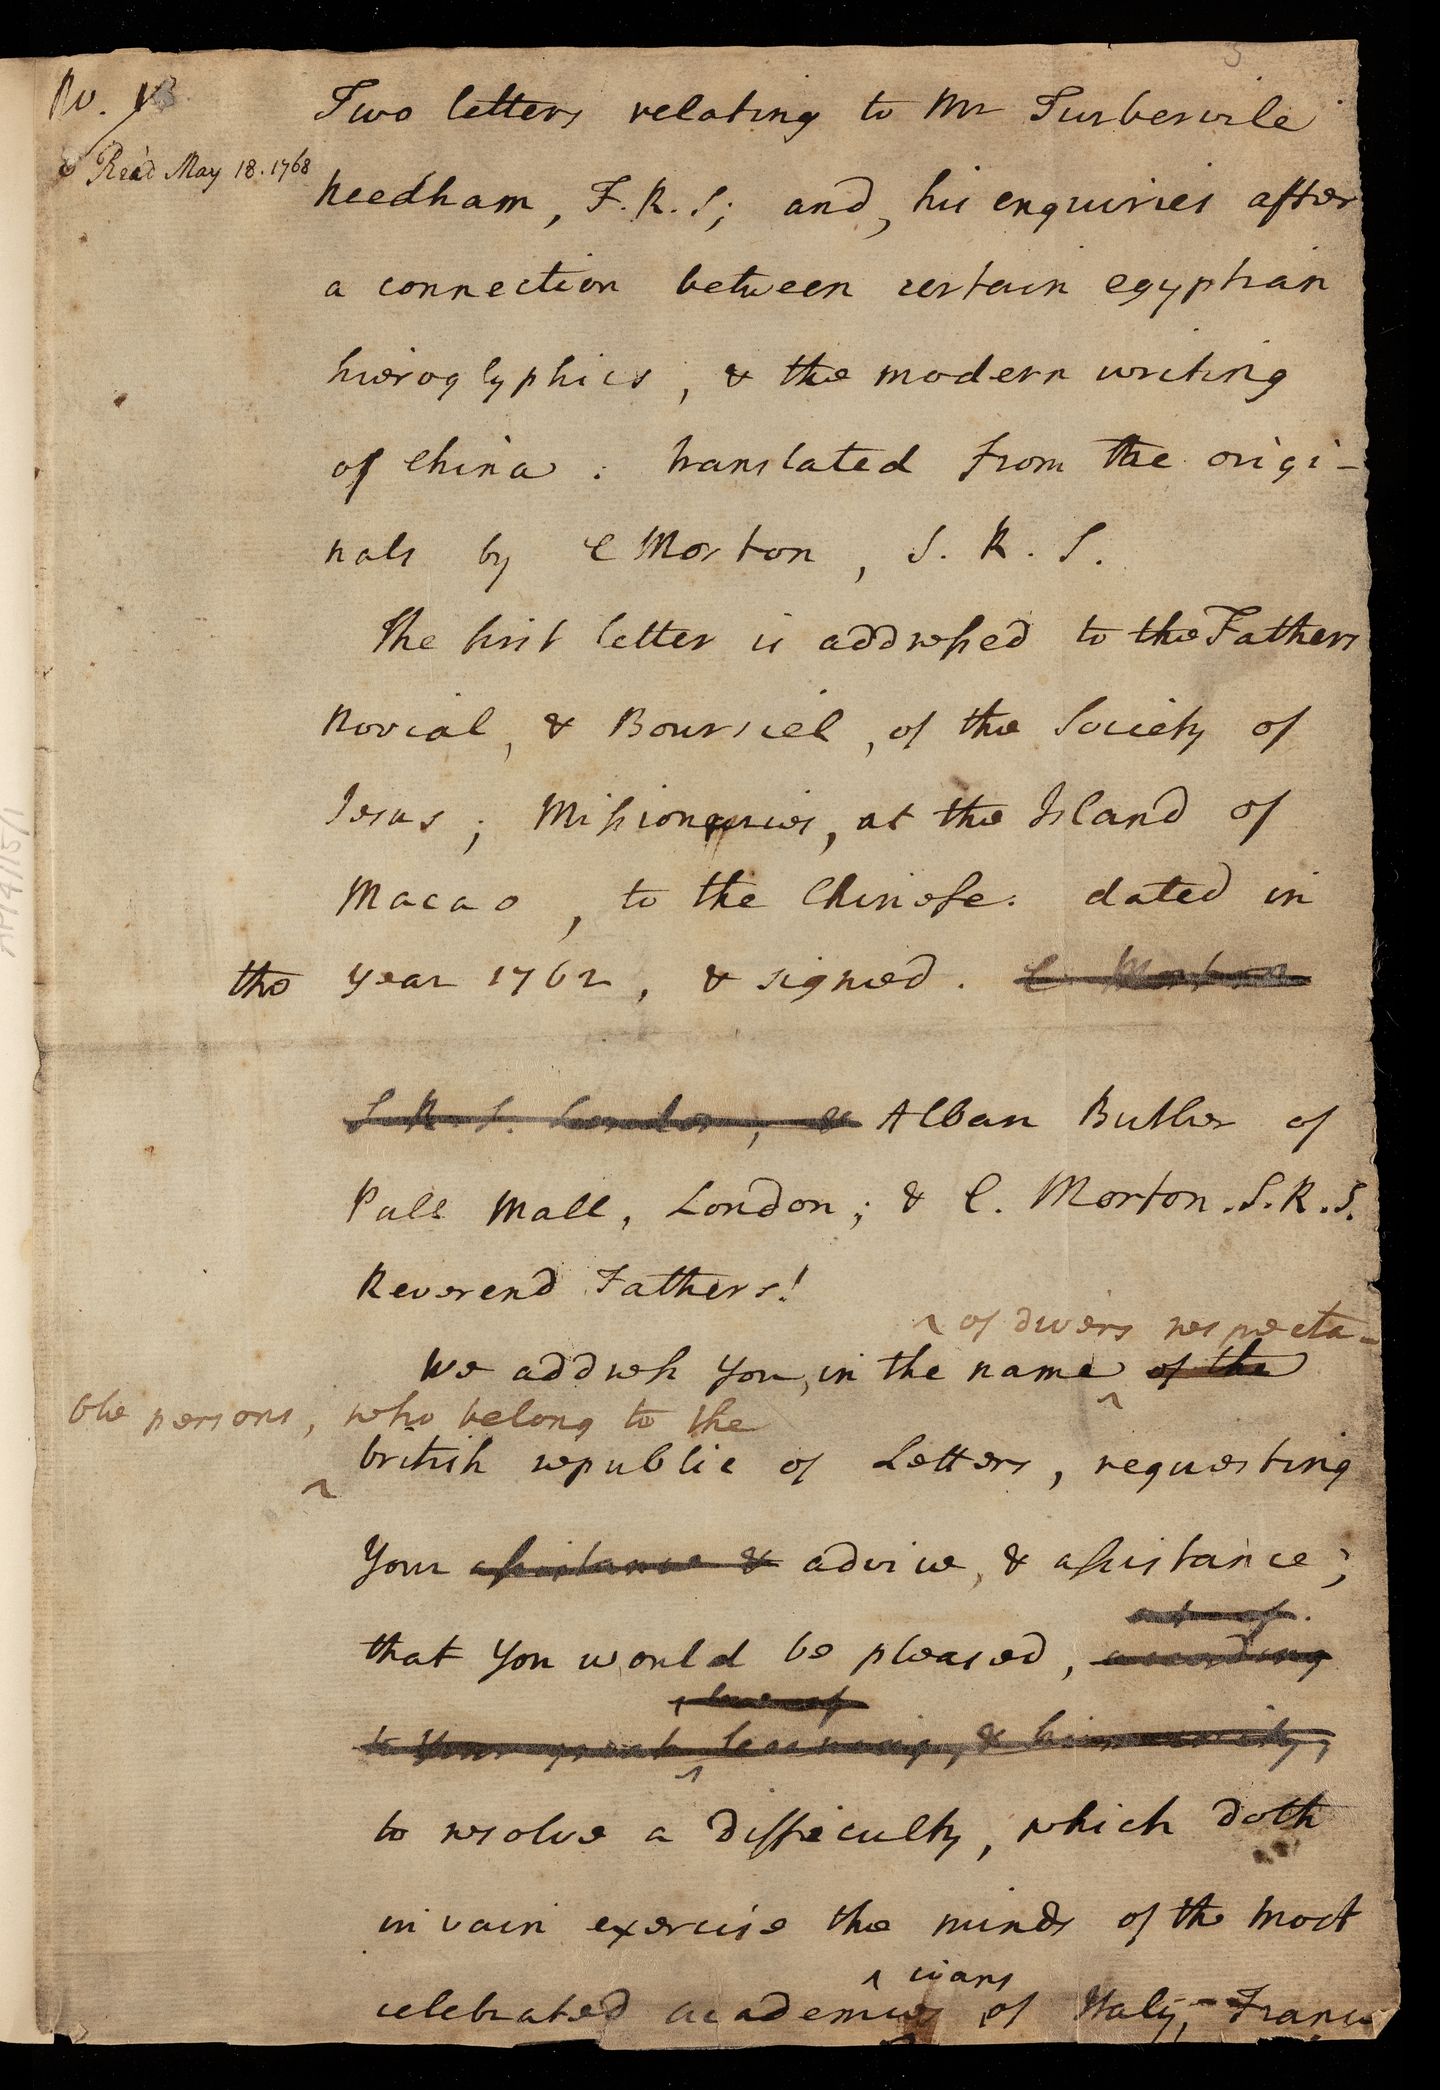 No. 13
Read May 18. 1768
Two letters relating to Mr Turbervile
Needham, F.R.S; and, his enquiries after
a connection between certain egyptian
hieroglyphics, & the modern writing
of China: translated from the origi-
nals by C Morton, S. R. S.
The first letter is addressed to the Fathers
Rovial, & Boursiel, of the Society of
Jesus; Missionaries, at the Island of
Macao, to the Chinese. dated in
the year 1762, & signed. C. Morton
S. R. S. London, & Alban Butler of
Pall Mall, London; & C. Morton. S.R.S.
Reverend Fathers!
of divers respecta-
We address You, in the name of the
ble persons, who belong to the
british republic of Letters, requesting
Your assistance & advice, & assistance;
that You would be pleased, according
love of
to Your great learning, & humanity,
to resolve a difficulty, which doth
in vain exercise the minds of the most
cians
celebrated academies of Italy, France
AP/4/15/1